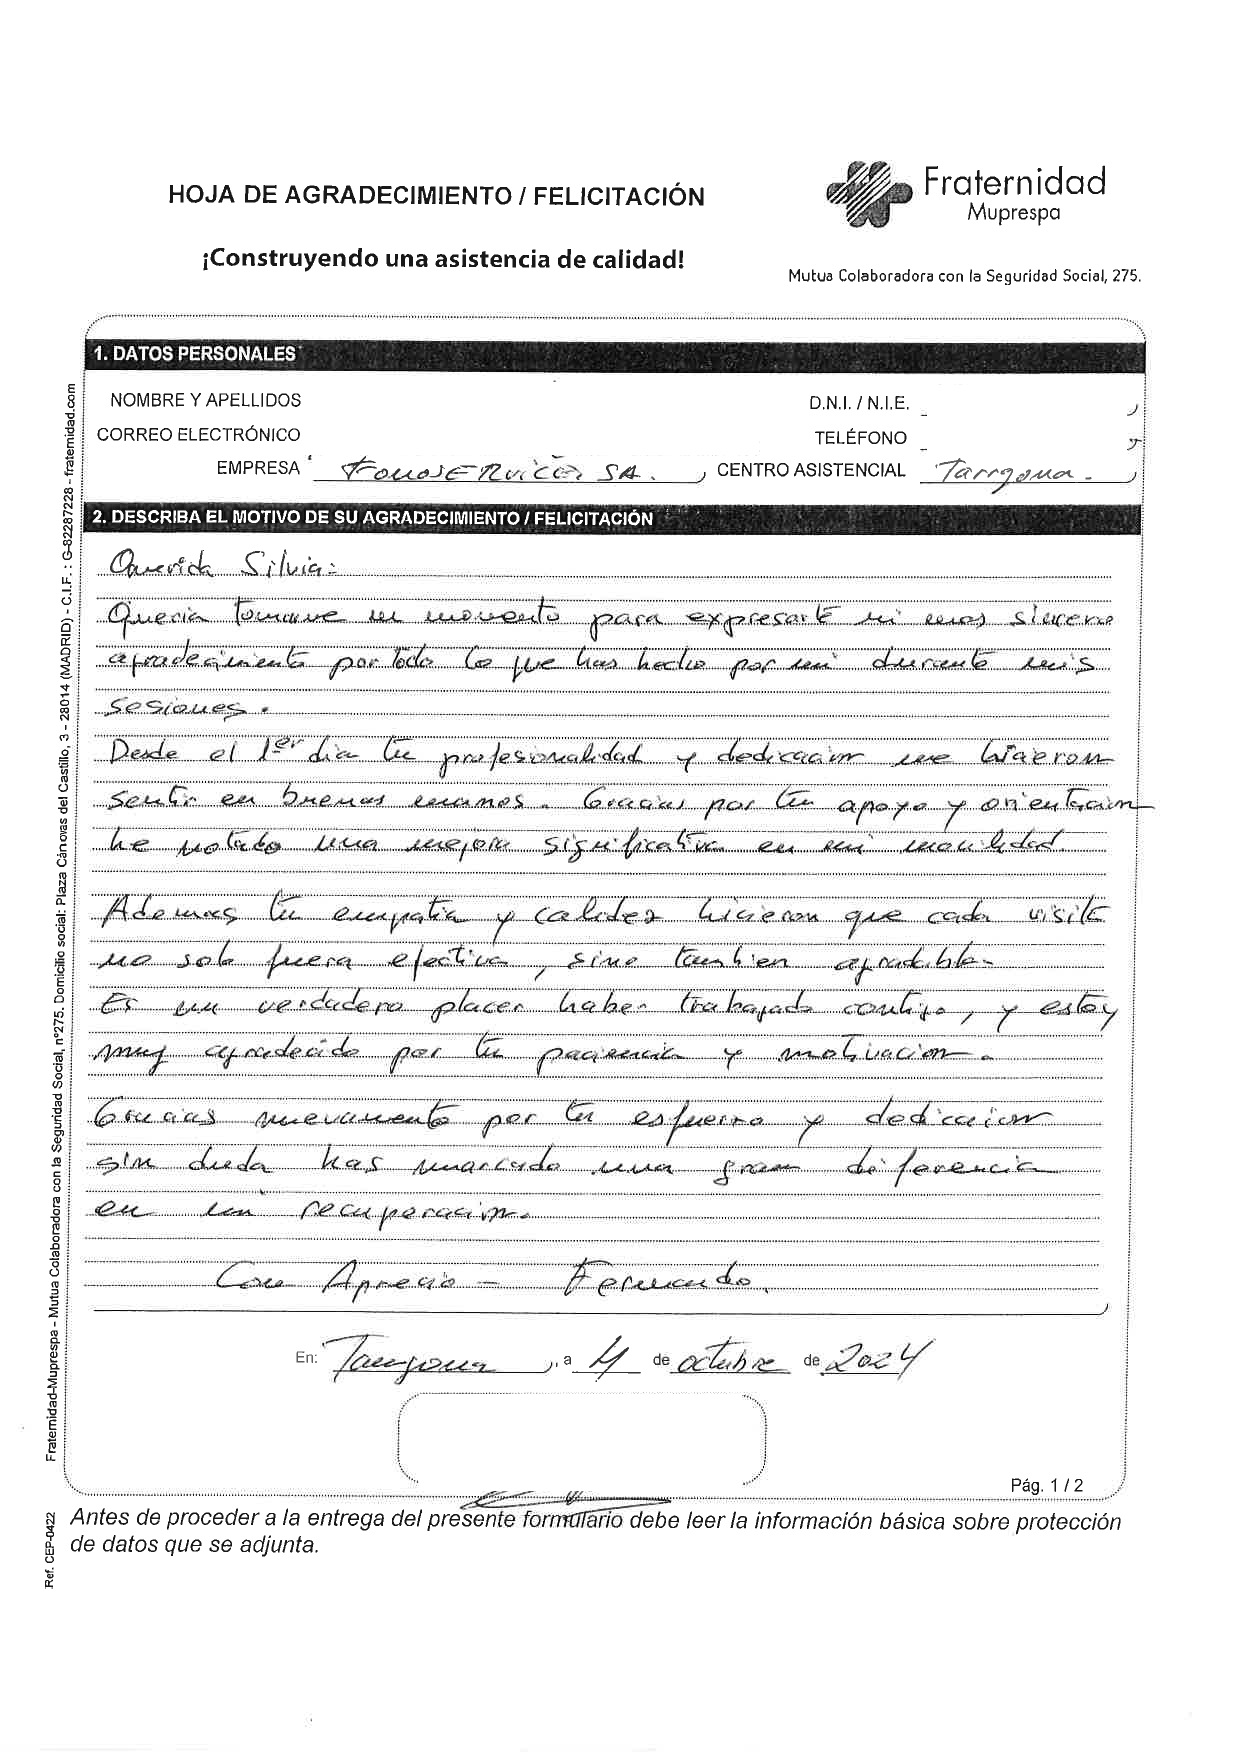 HOJA DE AGRADECIMIENTO / FELICITACIÓN
¡Construyendo una asistencia de calidad!
Fraternidad
Muprespa
Mutua Colaboradora con la Seguridad Social, 275.
1. DATOS PERSONALES
NOMBRE Y APELLIDOS
D.N.I. / N.I.E.
CORREO ELECTRÓNICO
TELÉFONO
EMPRESA SA. CENTRO ASISTENCIAL Tarragona.
2. DESCRIBA EL MOTIVO DE SU AGRADECIMIENTO / FELICITACIÓN
Querida Silvia:
Queria tomarme un momento para expresarte mi mas sincero
agradecimiento por todo lo que has hecho por mi durante mis
sesiones.
Desde el 1er dia tu profesionalidad y dedicacion me hicieron
sentir en buenas manos. Gracias por tu apoyo y orientacion
he notado una mejora significativa en mi movilidad
Ademas tu empatia y calidez hicieron que cada visita
no solo fuera efectiva, sino tambien agradable.
Es un verdadero placer haber trabajado contigo, y estoy
muy agradecido por tu paciencia y motivacion.
Gracias nuevamente por tu esfuerzo y dedicacion
sin duda has marcado una gran diferencia
en mi recuperacion.
Con Aprecio - Fernando.
En: Tarragona, a 4 de octubre de 2024
Pág. 1 / 2
Antes de proceder a la entrega del presente formulario debe leer la información básica sobre protección
de datos que se adjunta.
Fraternidad-Muprespa - Mutua Colaboradora con la Seguridad Social, nº275. Domicilio social: Plaza Cánovas del Castillo, 3 - 28014 (MADRID) - C.I.F. : G-82287228 - fraternidad.com
Ref. CEP-0422